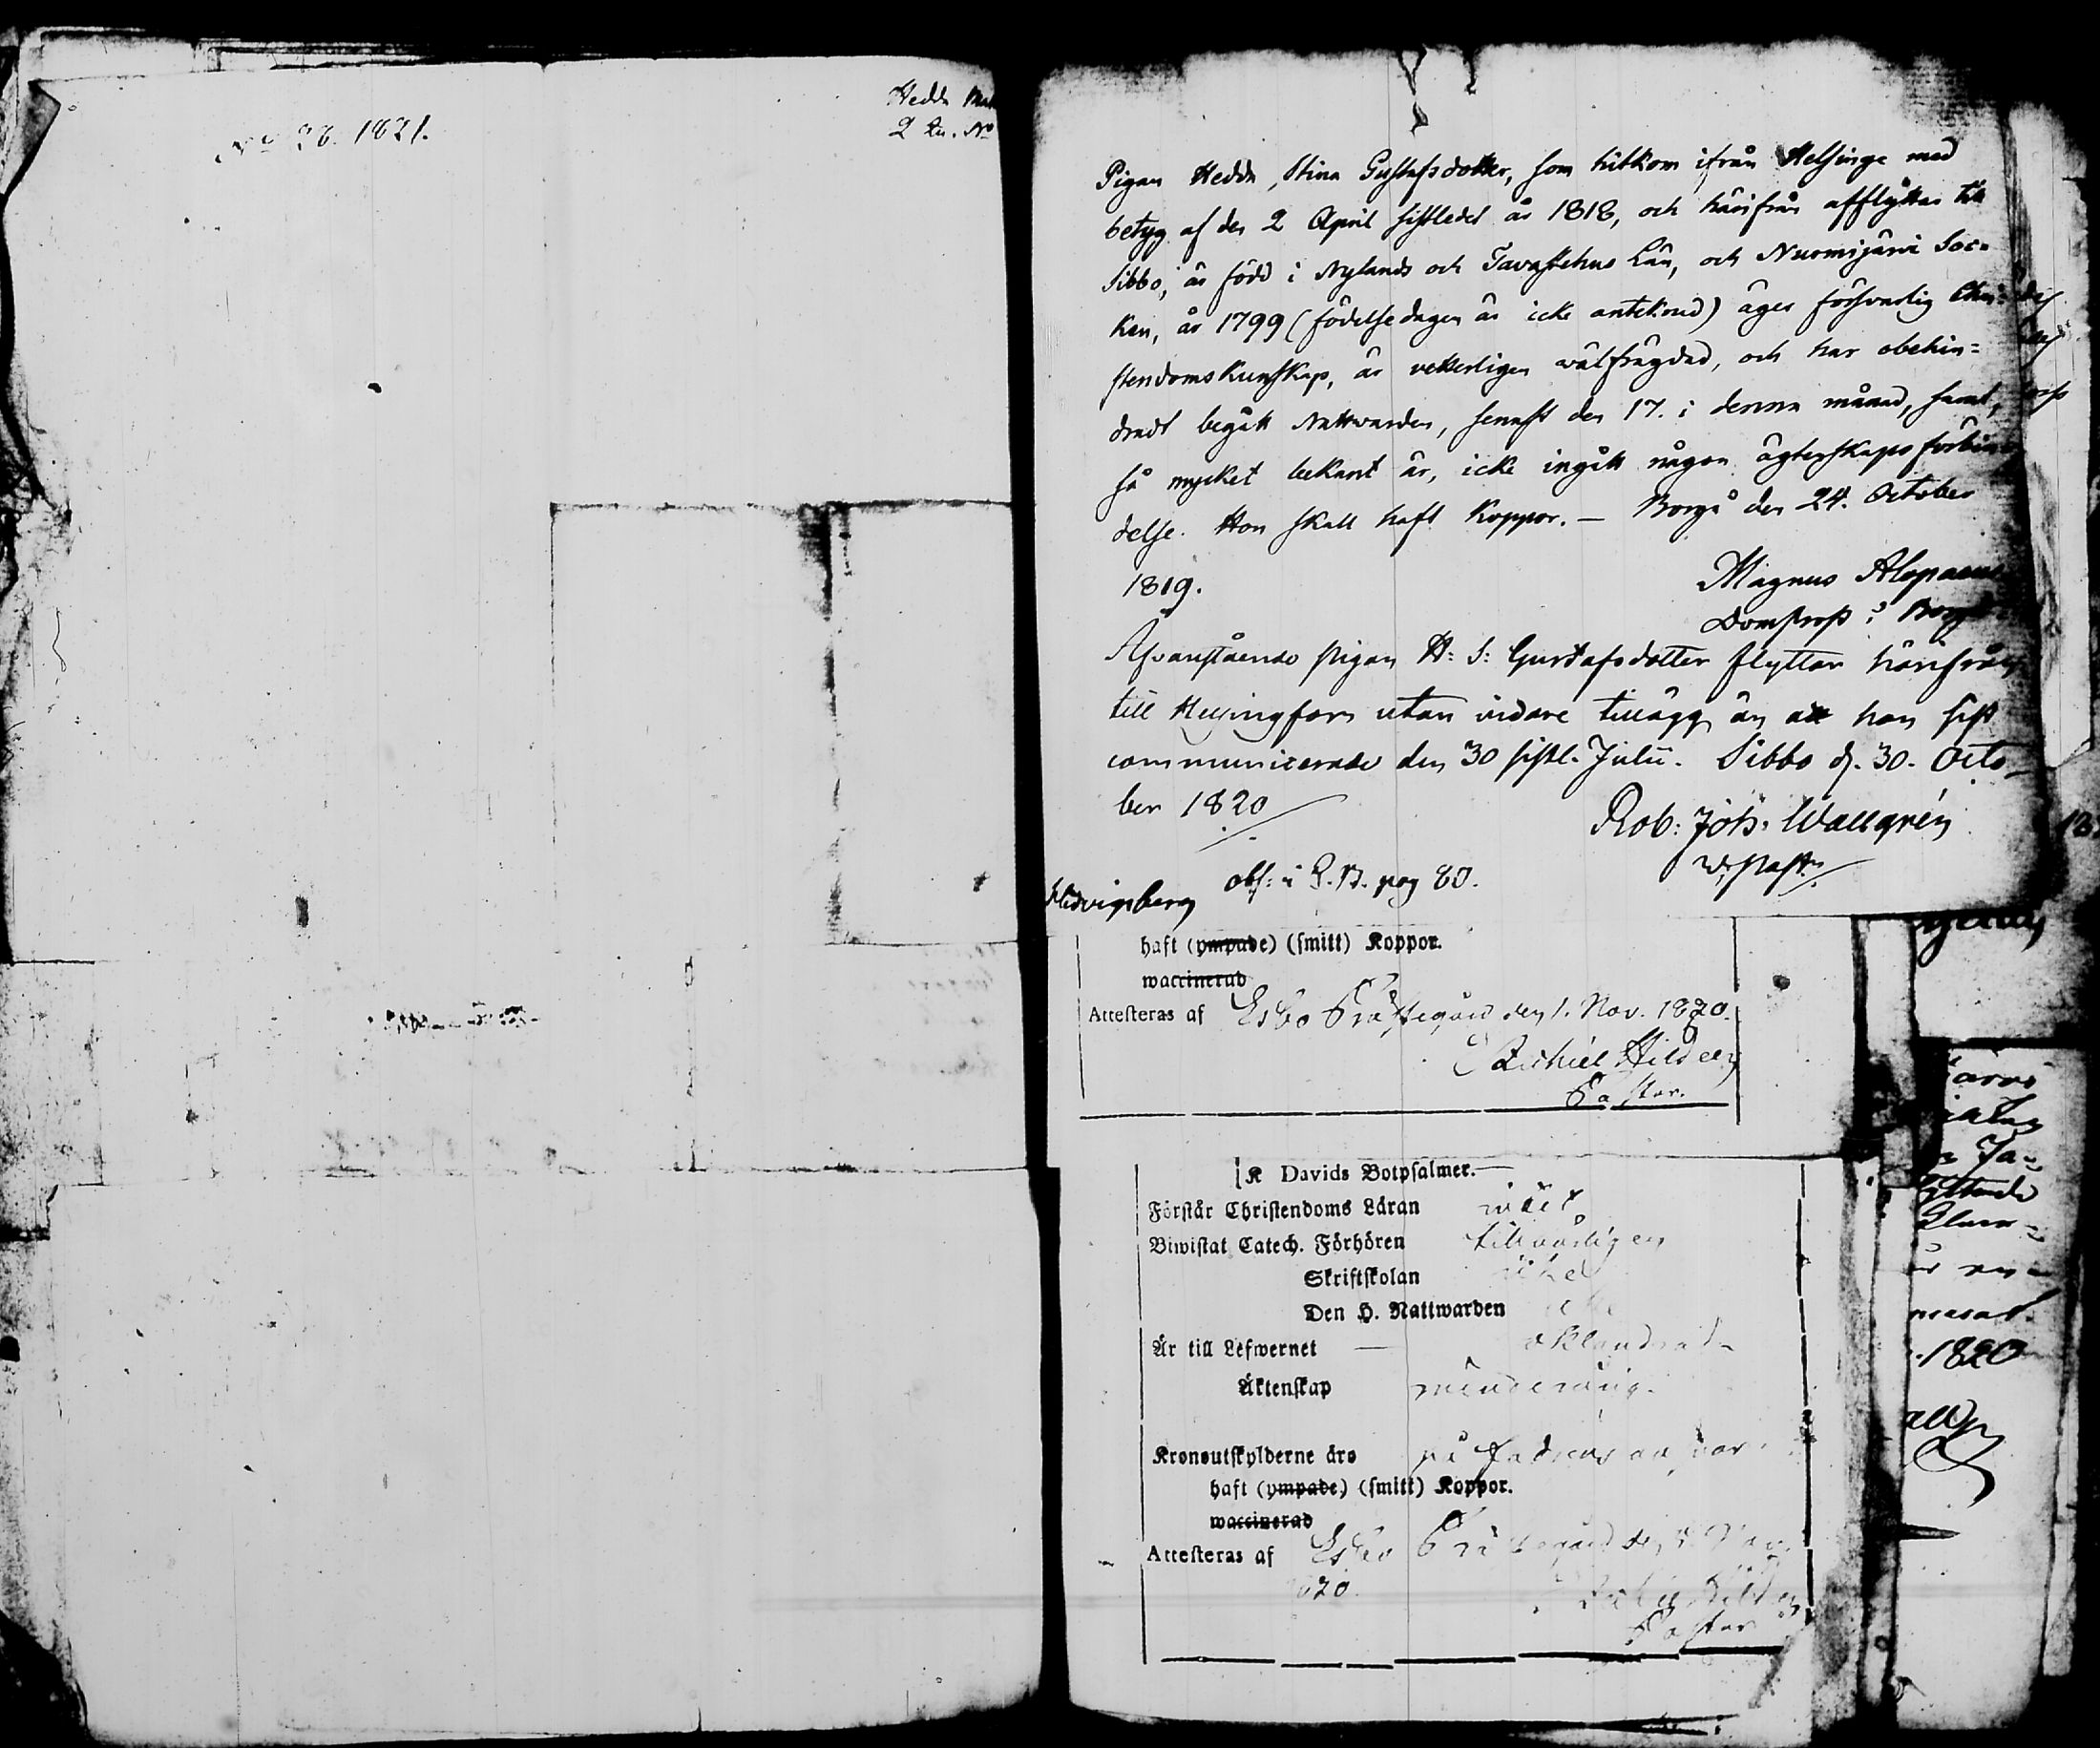 No 28. 1821.
Hedda
2 Qu. No
Pigan Hedda Stina Gustafsdotter, som hitkom ifrån Helsinge med
betyg af den 2 April sistledet år 1818, och härifrån afflyttar till
Sibbo, är född i Nylands och Tavastehus Län, och Nurmijärvi Soc=
ken, år 1799 (födelsedagen är icke anteknad) äger försvarlig Chri=
stendomskunskap, är vetterligen wälfrägdad, och har obehin=
dradt begått Nattvarden, senast den 17. i denna månad, samt,
så mycket bekant är, icke ingått någon ägtenskapsförbin
delse. Hon skall haft Koppor. — Borgå den 24. October
1819.
Magnus Alopaeus
Domprost i Borgå
Ofvanstående pigan H: S: Gustafsdotter flyttar härifrån
till Helsingfors utan vidare tillägg än att hon sist
communicerade den 30 sistl. Julii. Sibbo d. 30. Octo
ber 1820
Rob: Joh: Wallgrén
V. Past.
obs: i L. B. pag 80.
Hedvigsberg
haft (ympade) (smitt) Koppor.
waccinerad
Attesteras af Esbo Prästegård den 1. Nov. 1820.
Ezechiel Hildeen
Pastor.
K Davids Botpsalmer.—
Förstår Christendoms Läran
Biwistat Catech. Förhören
Skriftskolan
Den H. Nattwarden
Är till Lefwernet — oklandrad
Äktenskap minderårig.
Kronoutskylderne äro på fadrens ansvar
haft (ympade) (smitt) Koppor.
waccinerad
Attesteras af Esbo Prästegård den 1 Nov.
1820.
Pastor
1820